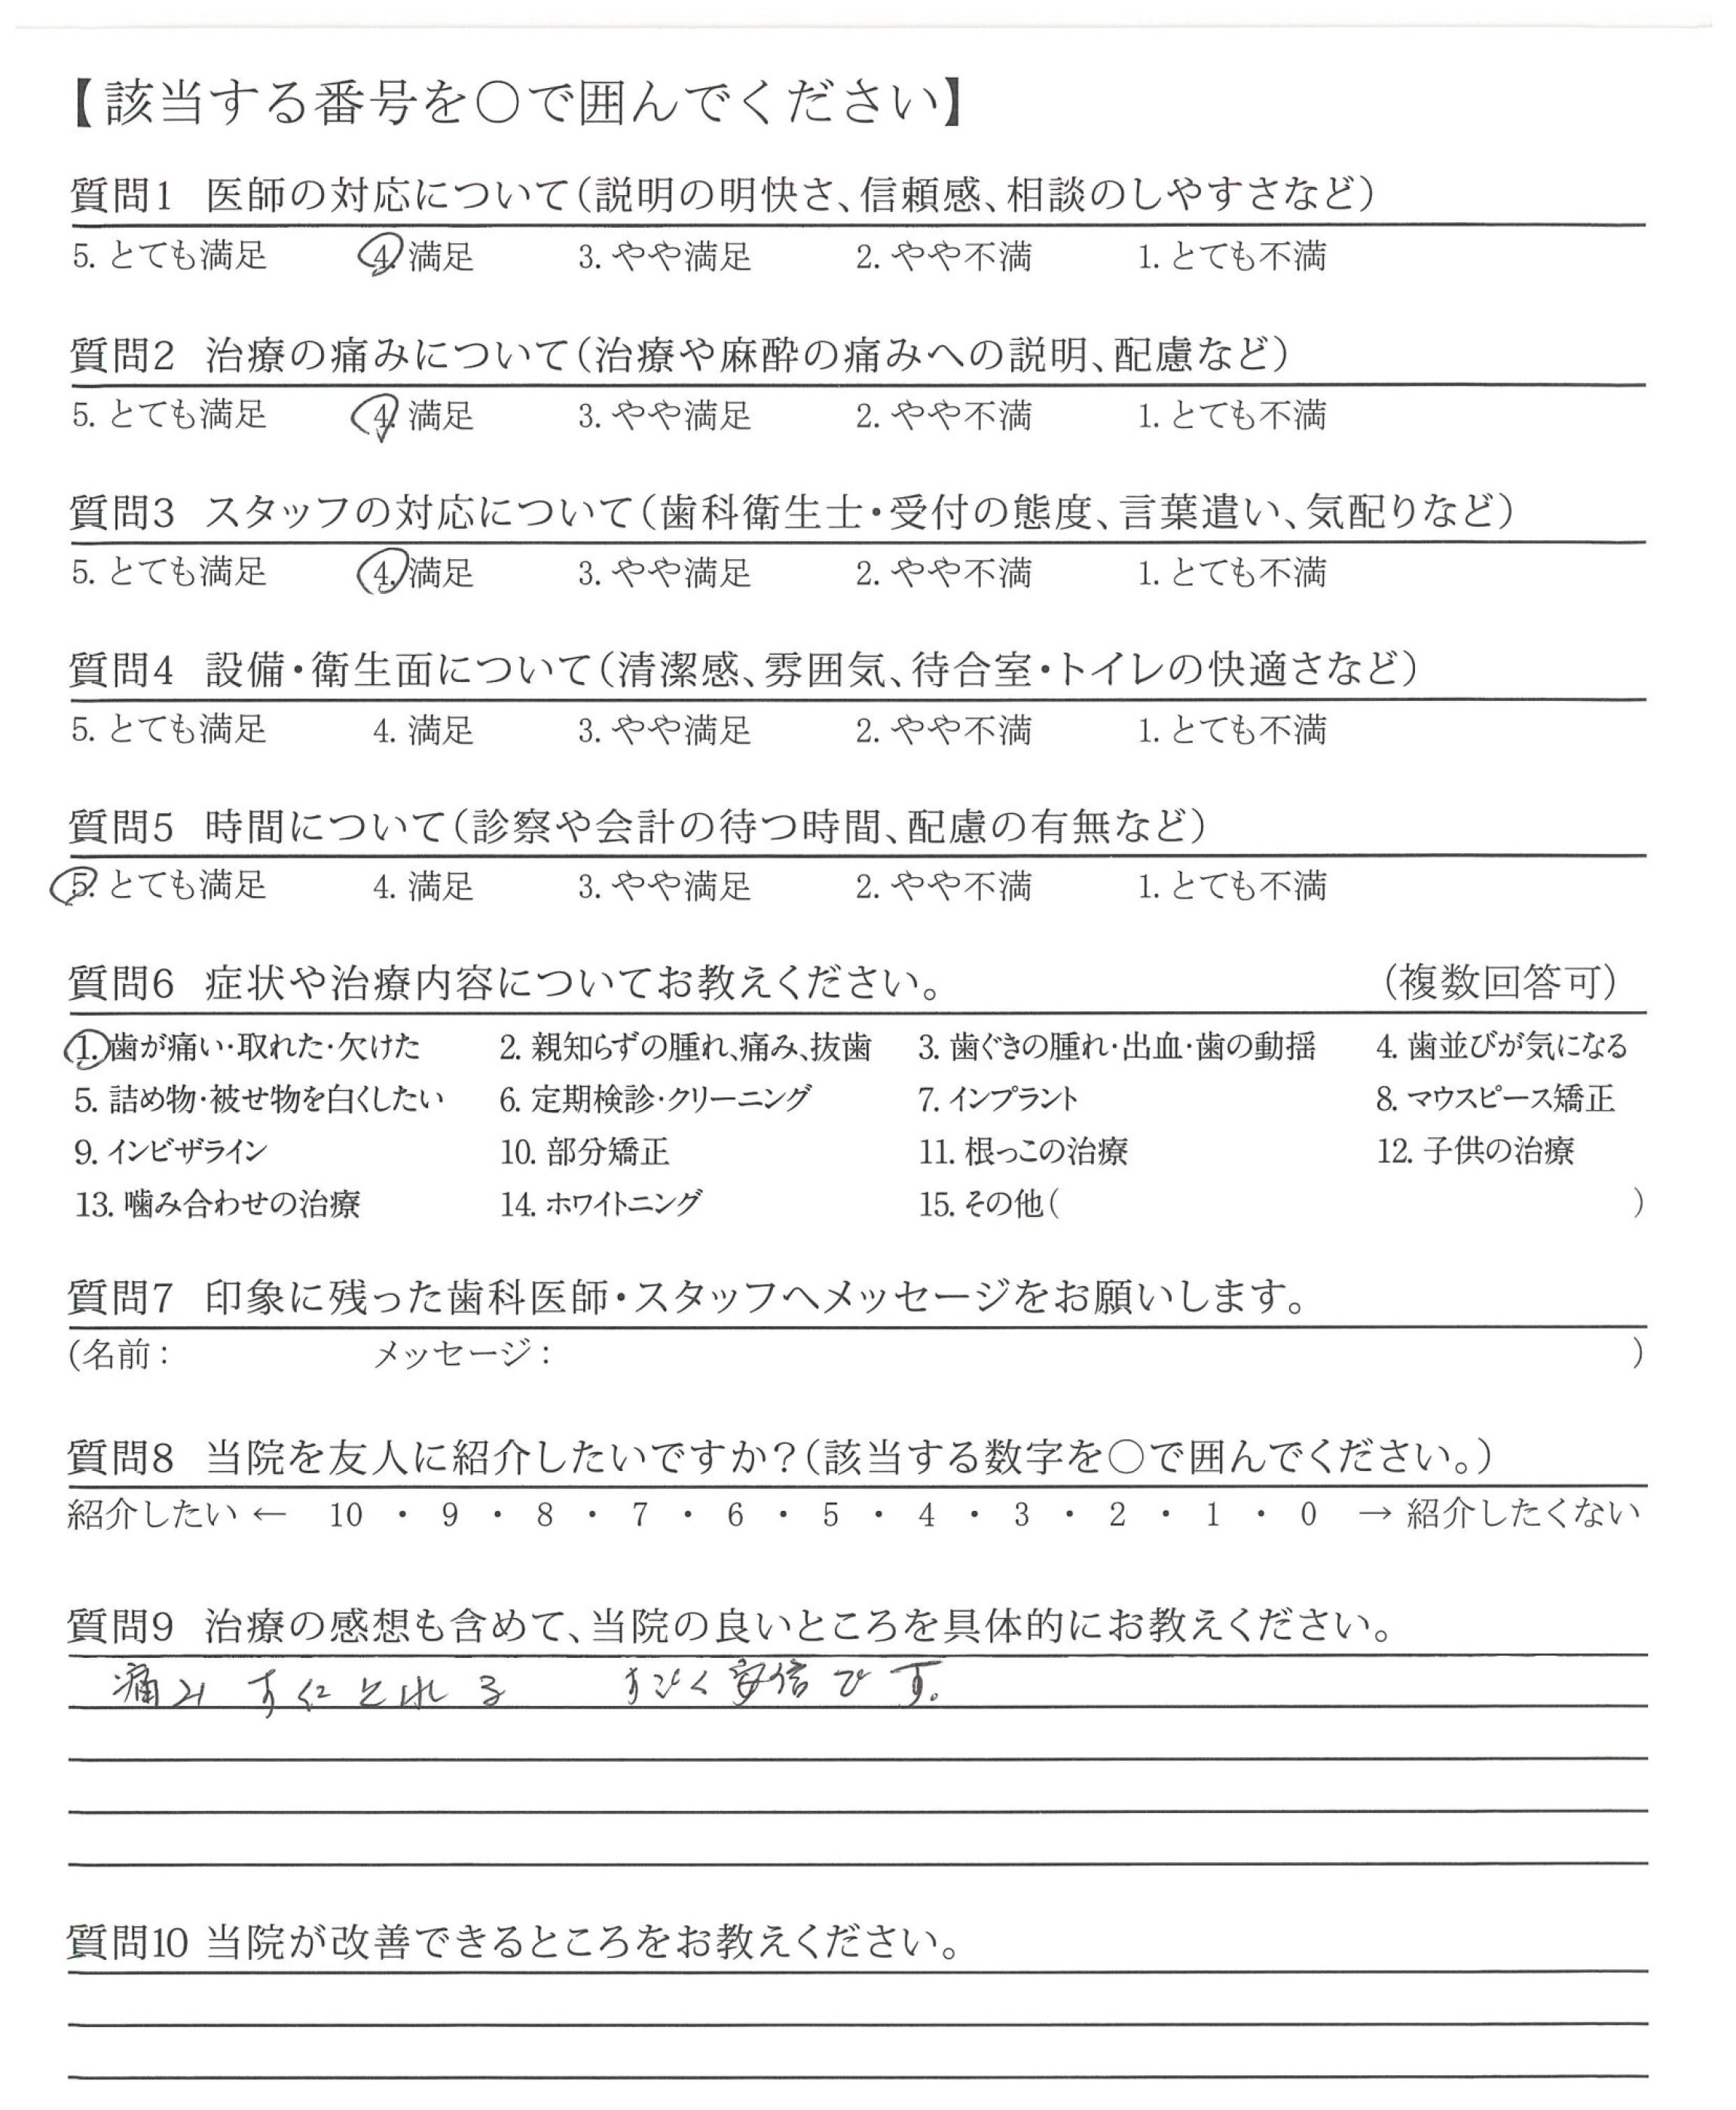 【該当する番号を○で囲んでください】
質問1 医師の対応について(説明の明快さ、信頼感、相談のしやすさなど)
5. とても満足 4. 満足 3. やや満足 2. やや不満 1. とても不満
質問2 治療の痛みについて(治療や麻酔の痛みへの説明、配慮など)
5. とても満足 4. 満足 3. やや満足 2. やや不満 1. とても不満
質問3 スタッフの対応について(歯科衛生士・受付の態度、言葉遣い、気配りなど)
5. とても満足 4. 満足 3. やや満足 2. やや不満 1. とても不満
質問4 設備・衛生面について(清潔感、雰囲気、待合室・トイレの快適さなど)
5. とても満足 4. 満足 3. やや満足 2. やや不満 1. とても不満
質問5 時間について(診察や会計の待つ時間、配慮の有無など)
5. とても満足 4. 満足 3. やや満足 2. やや不満 1. とても不満
質問6 症状や治療内容についてお教えください。 (複数回答可)
1. 歯が痛い・取れた・欠けた 2. 親知らずの腫れ、痛み、抜歯 3. 歯ぐきの腫れ・出血・歯の動揺 4. 歯並びが気になる
5. 詰め物・被せ物を白くしたい 6. 定期検診・クリーニング 7. インプラント 8. マウスピース矯正
9. インビザライン 10. 部分矯正 11. 根っこの治療 12. 子供の治療
13. 噛み合わせの治療 14. ホワイトニング 15. その他( )
質問7 印象に残った歯科医師・スタッフへメッセージをお願いします。
(名前: メッセージ: )
質問8 当院を友人に紹介したいですか?(該当する数字を○で囲んでください。)
紹介したい ← 10 ・ 9 ・ 8 ・ 7 ・ 6 ・ 5 ・ 4 ・ 3 ・ 2 ・ 1 ・ 0 → 紹介したくない
質問9 治療の感想も含めて、当院の良いところを具体的にお教えください。
痛み すぐとれる すごく安信です。
質問10 当院が改善できるところをお教えください。